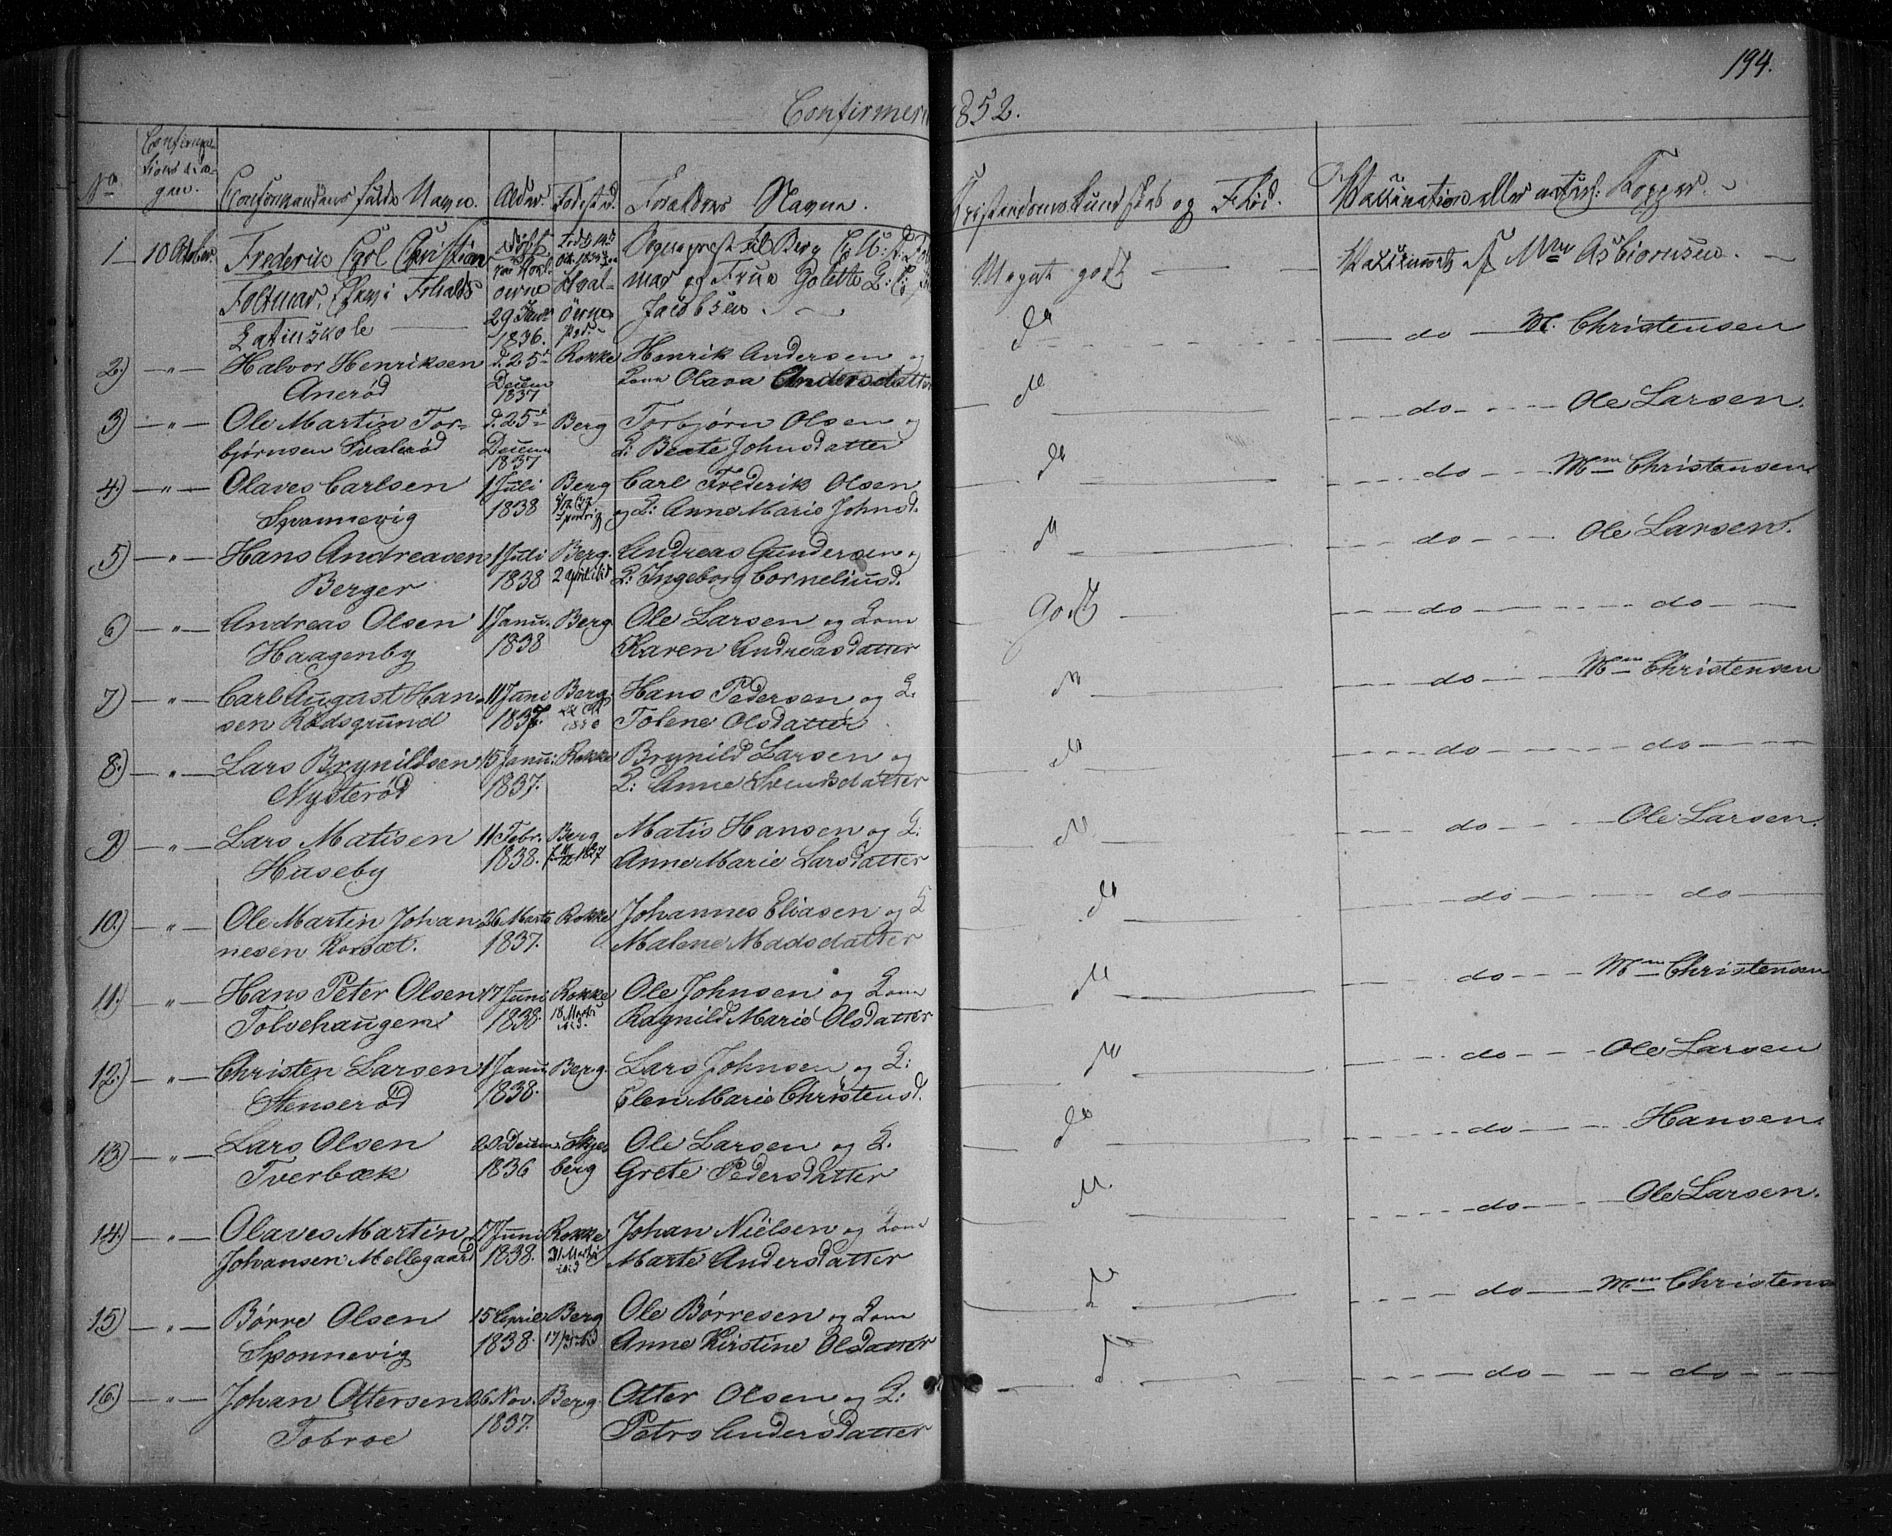 194.
Confirmer 1852.
No
Confirma-
tions da-
gen.
Confirmandens fulde Navn. Alder. Fødested. Forældres Navne.
Kristendoms Kundskab og Flid.
Vaccination eller naturl: Kopper.
1 10 Oktober Frederik Carl Christian
Foltmar,
Latinskole
29 Janr
1836.
Sogneprest til Berg
mar og Frue
Jacobsen.
Meget godt
Asbiørnsen.
2) " Halvor Henriksen d. 25t Rokke Henrik Andersen og
Anerød Decem 1837 Kone Olava Andersdatter
do do M. Christensen
3) " Ole Martin Tor- d. 25t Berg Torbjørn Olsen og
bjørnsen Svalerød Decem 1837 K: Beate Johnsdatter
do do Ole Larsen.
4) " Olaves Carlsen 1 Juli Berg Carl Frederik Olsen
Sponnevig 1838 og K: Anne Marie Johnsd.
do do Mam Christensen
5) " Hans Andreasen 1 Juli Berg. Andreas Gundersen og
Berger 1838 2 april K: Ingeborg Corneliusd.
do do Ole Larsen.
6) " Andreas Olsen 1 Janu. Berg Ole Larsen og Kone
Haagenby 1838 Karen Andreasdatter
Godt do do
7) " Carl August Han- Berg. Hans Pedersen og K.
sen Rødsgrund 1837. Tolene Olsdatter
do do Mam Christensen
8.) " Lars Brynildsen 15 Janu: Rokke Brynild Larsen og
Nysterød 1837. K: Anne Svendsdatter
do do do
9) " Lars Matisen 11 Febr. Berg Matis Hansen og K:
Huseby 1838. Anne Marie Larsdatter
do do Ole Larsen.
10.) " Ole Martin Johan- 26 Marts Rokke Johannes Eliasen og K
nesen Korsæt. 1837. Malene Madsdatter
do do do
11.) " Hans Peter Olsen 17 Juni Rokke Ole Johnsen og Kone
Tolvehaugen 1838. Ragnild Marie Olsdatter
do do Mam Christensen
12.) " Christen Larsen 1 Janu Berg. Lars Johnsen og K:
Stenserød 1838. Elen Marie Christensd.
do do Ole Larsen
13.) " Lars Olsen 20 Decem. Skjeberg Ole Larsen og K.
Tverbæk 1836 Grete Pedersdatter
do do Hansen.
14.) " Olaves Martin 17 Juni Rokke Johan Nielsen og Kone
Johansen Mellegaard 1838. Marte Andersdatter
do do Ole Larsen.
15) " Børre Olsen 15 Aprie Berg Ole Børresen og Kone
Sponnevig 1838. Anne Kirstine Olsdatter
do do Mam Christens
16.) " Johan Ottersen 26 Nov. Berg. Otter Olsen og K:
Tobroe 1837. Petro Andersdatter
do do do